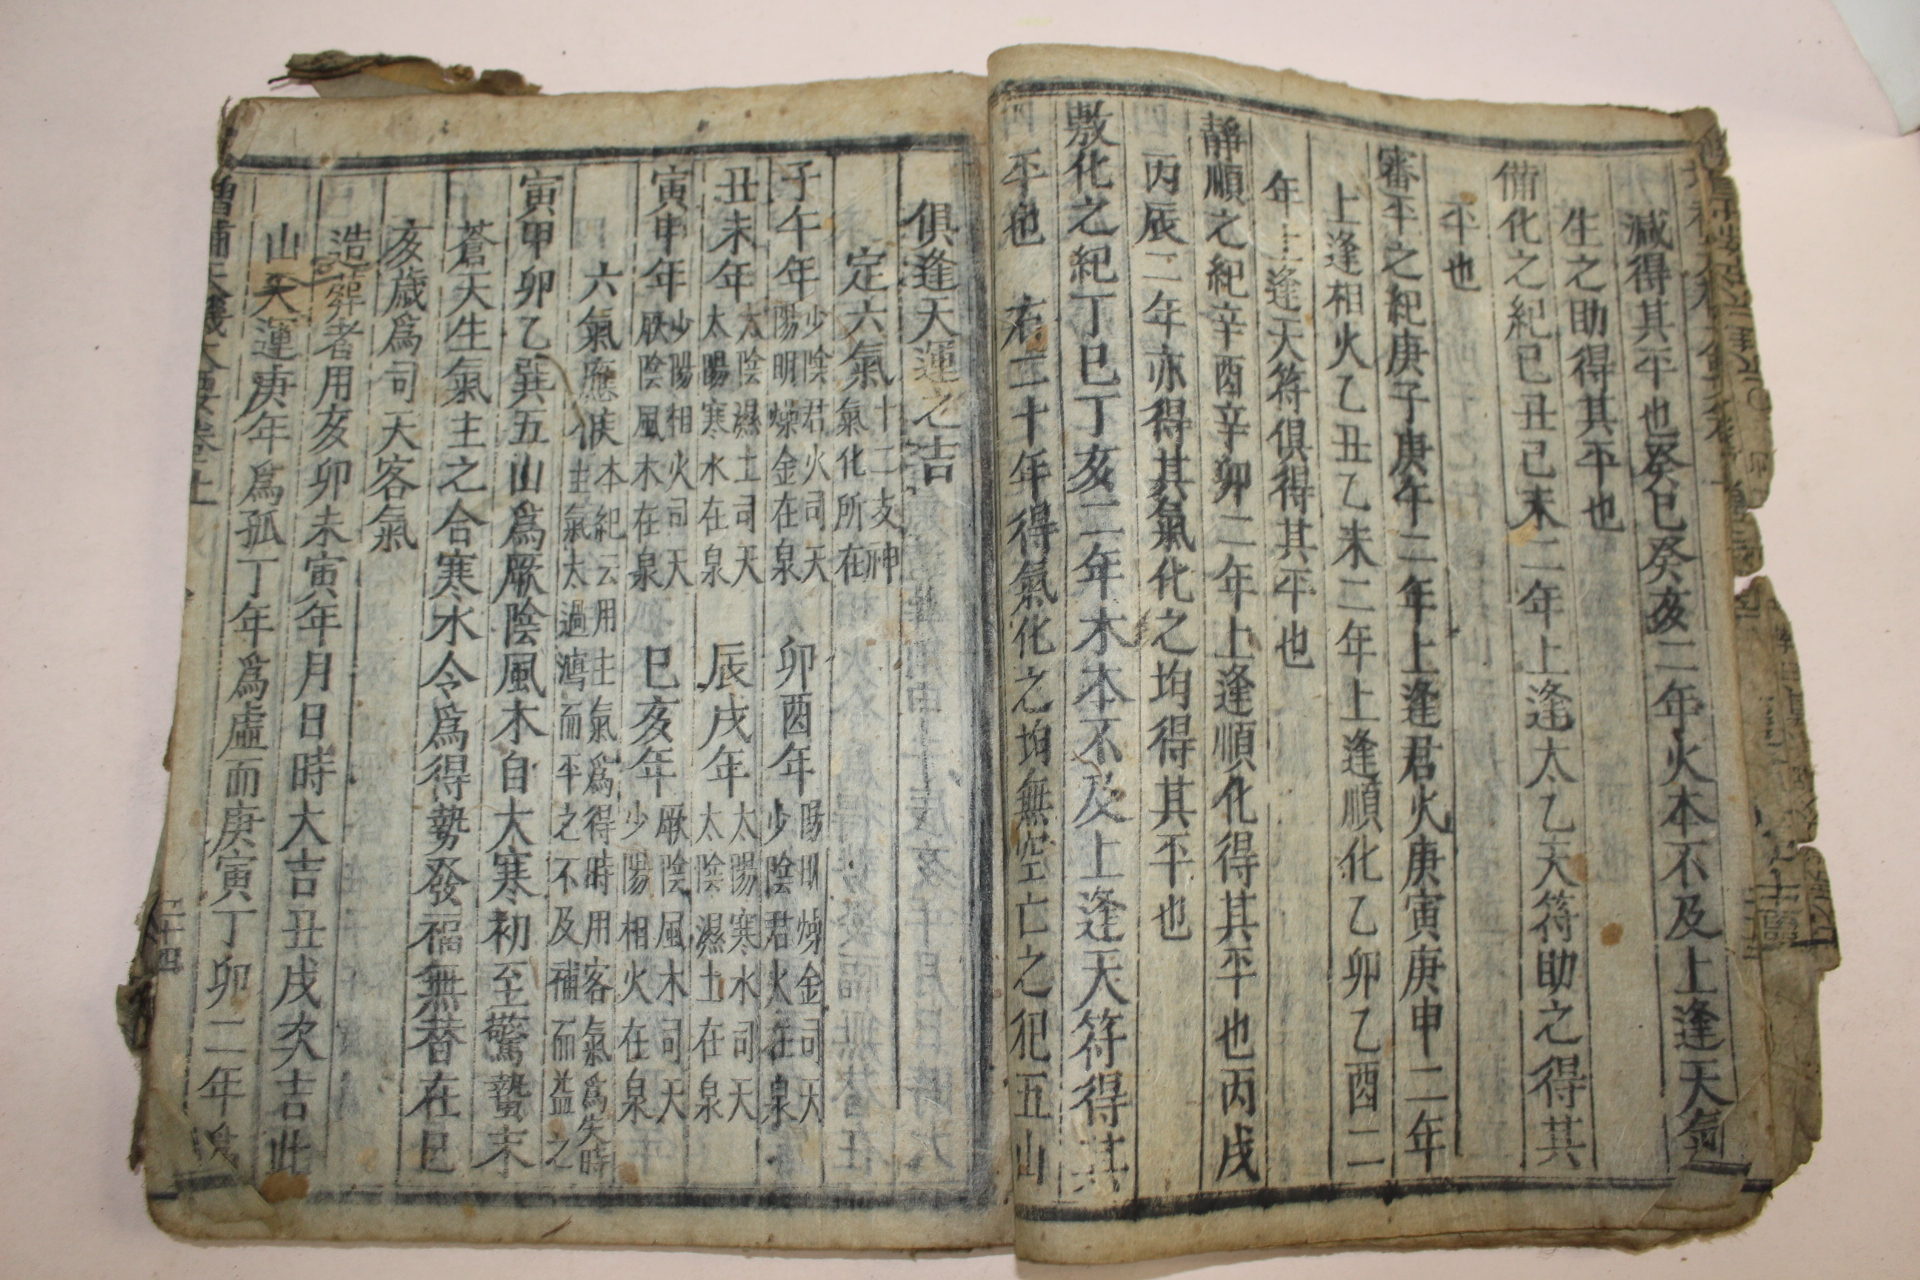 減得其平也癸巳癸亥二年火本不及上逢天氣
生之助得其平也
備化之紀己丑己未二年上逢太乙天符助之得其
平也
審平之紀庚子庚午二年上逢君火庚寅庚申二年
上逢相火乙丑乙未二年上逢順化乙卯乙酉二
年上逢天符俱得其平也
靜順之紀辛酉辛卯二年上逢順化得其平也丙戌
丙辰二年亦得其氣化之均得其平也
敷化之紀丁巳丁亥二年木本不及上逢天符得其
平也 右三十年得氣化之均無空亡之犯五山
俱逢天運之吉
定六氣十二支神氣化所在
子午年少陰君火司天陽明燥金在泉 卯酉年陽明燥金司天少陰君火在泉
丑未年太陰濕土司天太陽寒水在泉 辰戌年太陽寒水司天太陰濕土在泉
寅申年少陽相火司天厥陰風木在泉 巳亥年厥陰風木司天少陽相火在泉
六氣應候本紀云用主氣爲得時用客氣爲失時主氣太過瀉而平之不及補而益之
寅甲卯乙巽五山爲厥陰風木自大寒初至驚蟄末
蒼天生氣主之合寒水令爲得勢發福無替在巳
亥歲爲司天客氣
造葬者用亥卯未寅年月日時大吉丑戌次吉此
山大運庚年爲孤丁年爲虛而庚寅丁卯二年爲
二十四